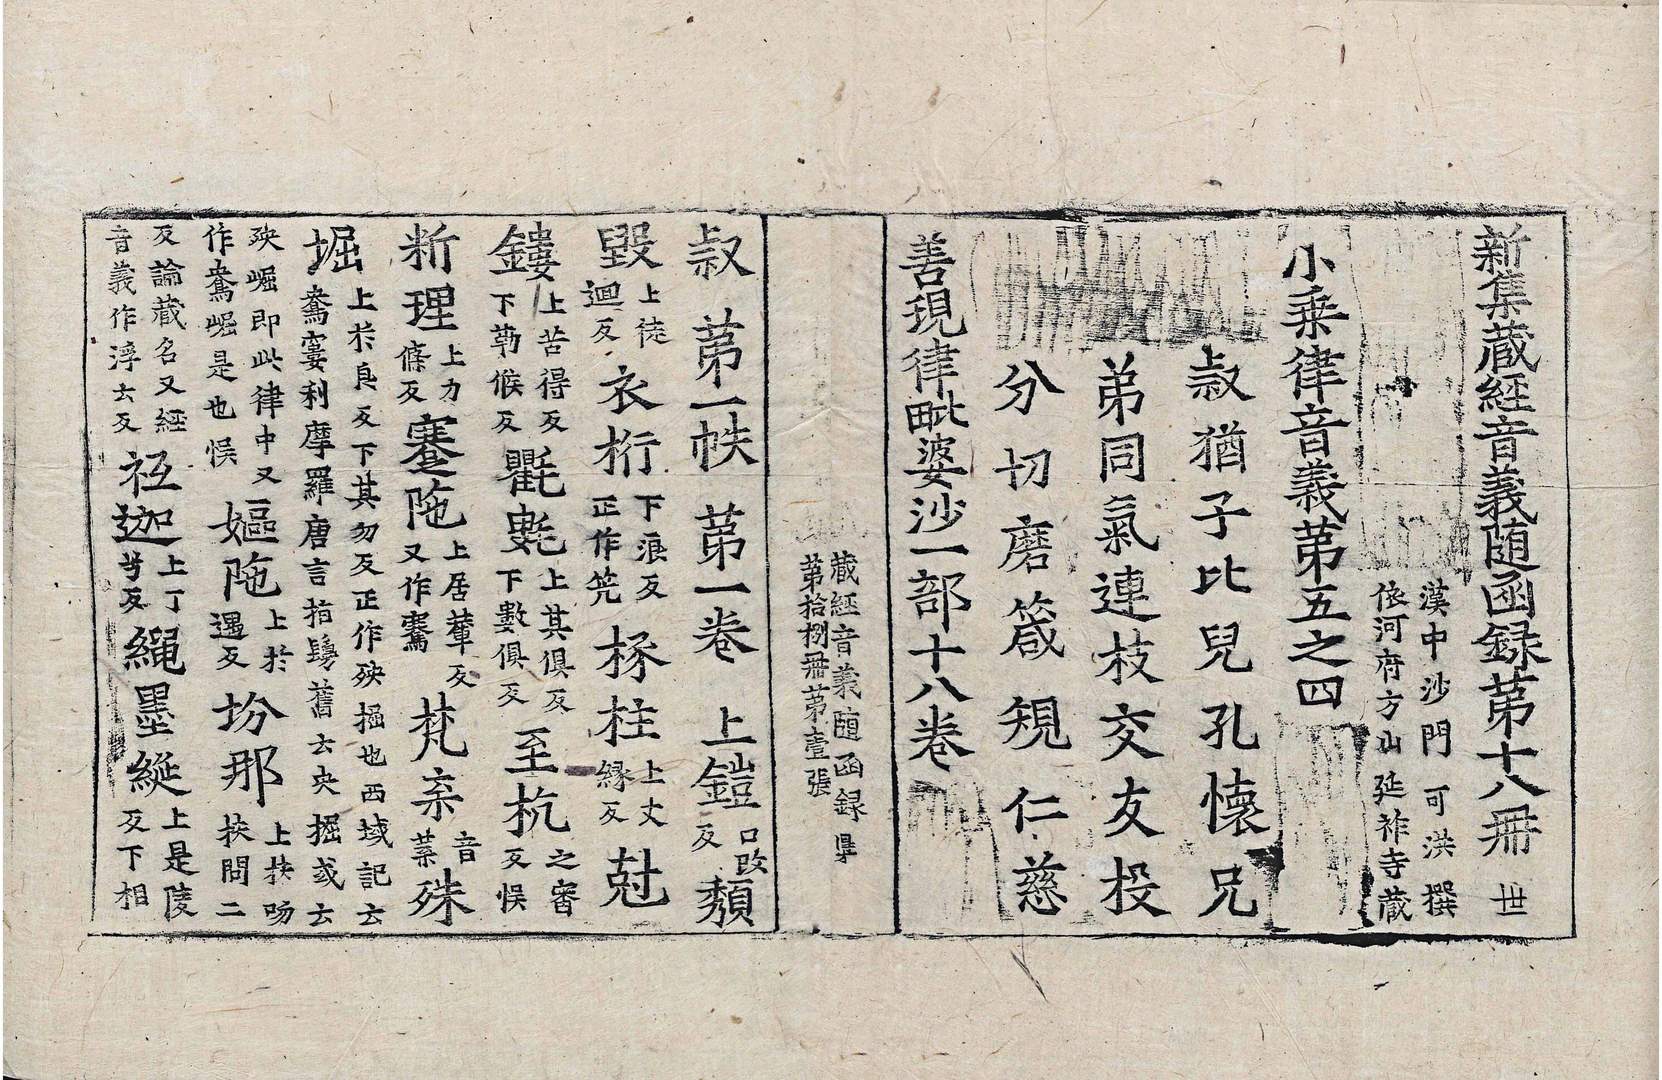 新集藏経音義随函録第十八冊 丗
漢中沙門 可洪 撰
依河府方山延祚寺藏
小乗律音義第五之四
叔猶子比兒孔懷兄
弟同氣連枝交友投
分切磨箴規仁慈
善現律毗婆沙一部十八卷
藏経音義随函録
第拾捌冊第壹張
叔 第一帙 第一卷 上鎧口改反 頽
毀上徒迴反 衣桁下浪反正作笐 㭟柱上丈縁反 尅
鏤上苦得反下勒候反 氍𣰽上其俱反下數俱反 至杭之審反悮
断理上力條反 蹇陁上居輦反又作騫 梵亲音業 殊
堀上於良反下其勿反正作殃掘也西域記云
鴦寠利摩羅唐言指鬘舊云央掘或云
殃崛即此律中又
作鴦崛是也悮 嫗陁上於遇反 坋那上扶吻扶問二
反論藏名又経
音義作浮去反 祇迦上丁兮反 繩墨綖上是陵反下相